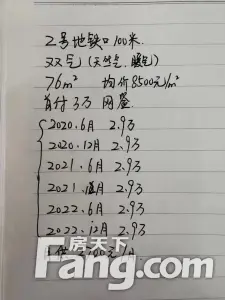 2号地铁口100米.
双气(天然气.暖气)
76m² 均价8500元/m²
首付3万 网签
2020.6月 2.9万
2020.12月 2.9万
2021.6月 2.9万
2021.12月 2.9万
2022.6月 2.9万
2022.12月 2.9万
房天下
Fang.com